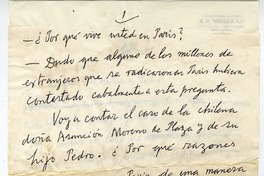 1
—¿Por qué vive usted en París?
— Dudo que alguno de los millones de
extranjeros que se radicaron en París hubiera
contestado cabalmente a esta pregunta.
Voy a contar el caso de la chilena
doña Asunción Moreno de Plaza y de su
hijo Pedro. ¿Por qué razones
de una manera